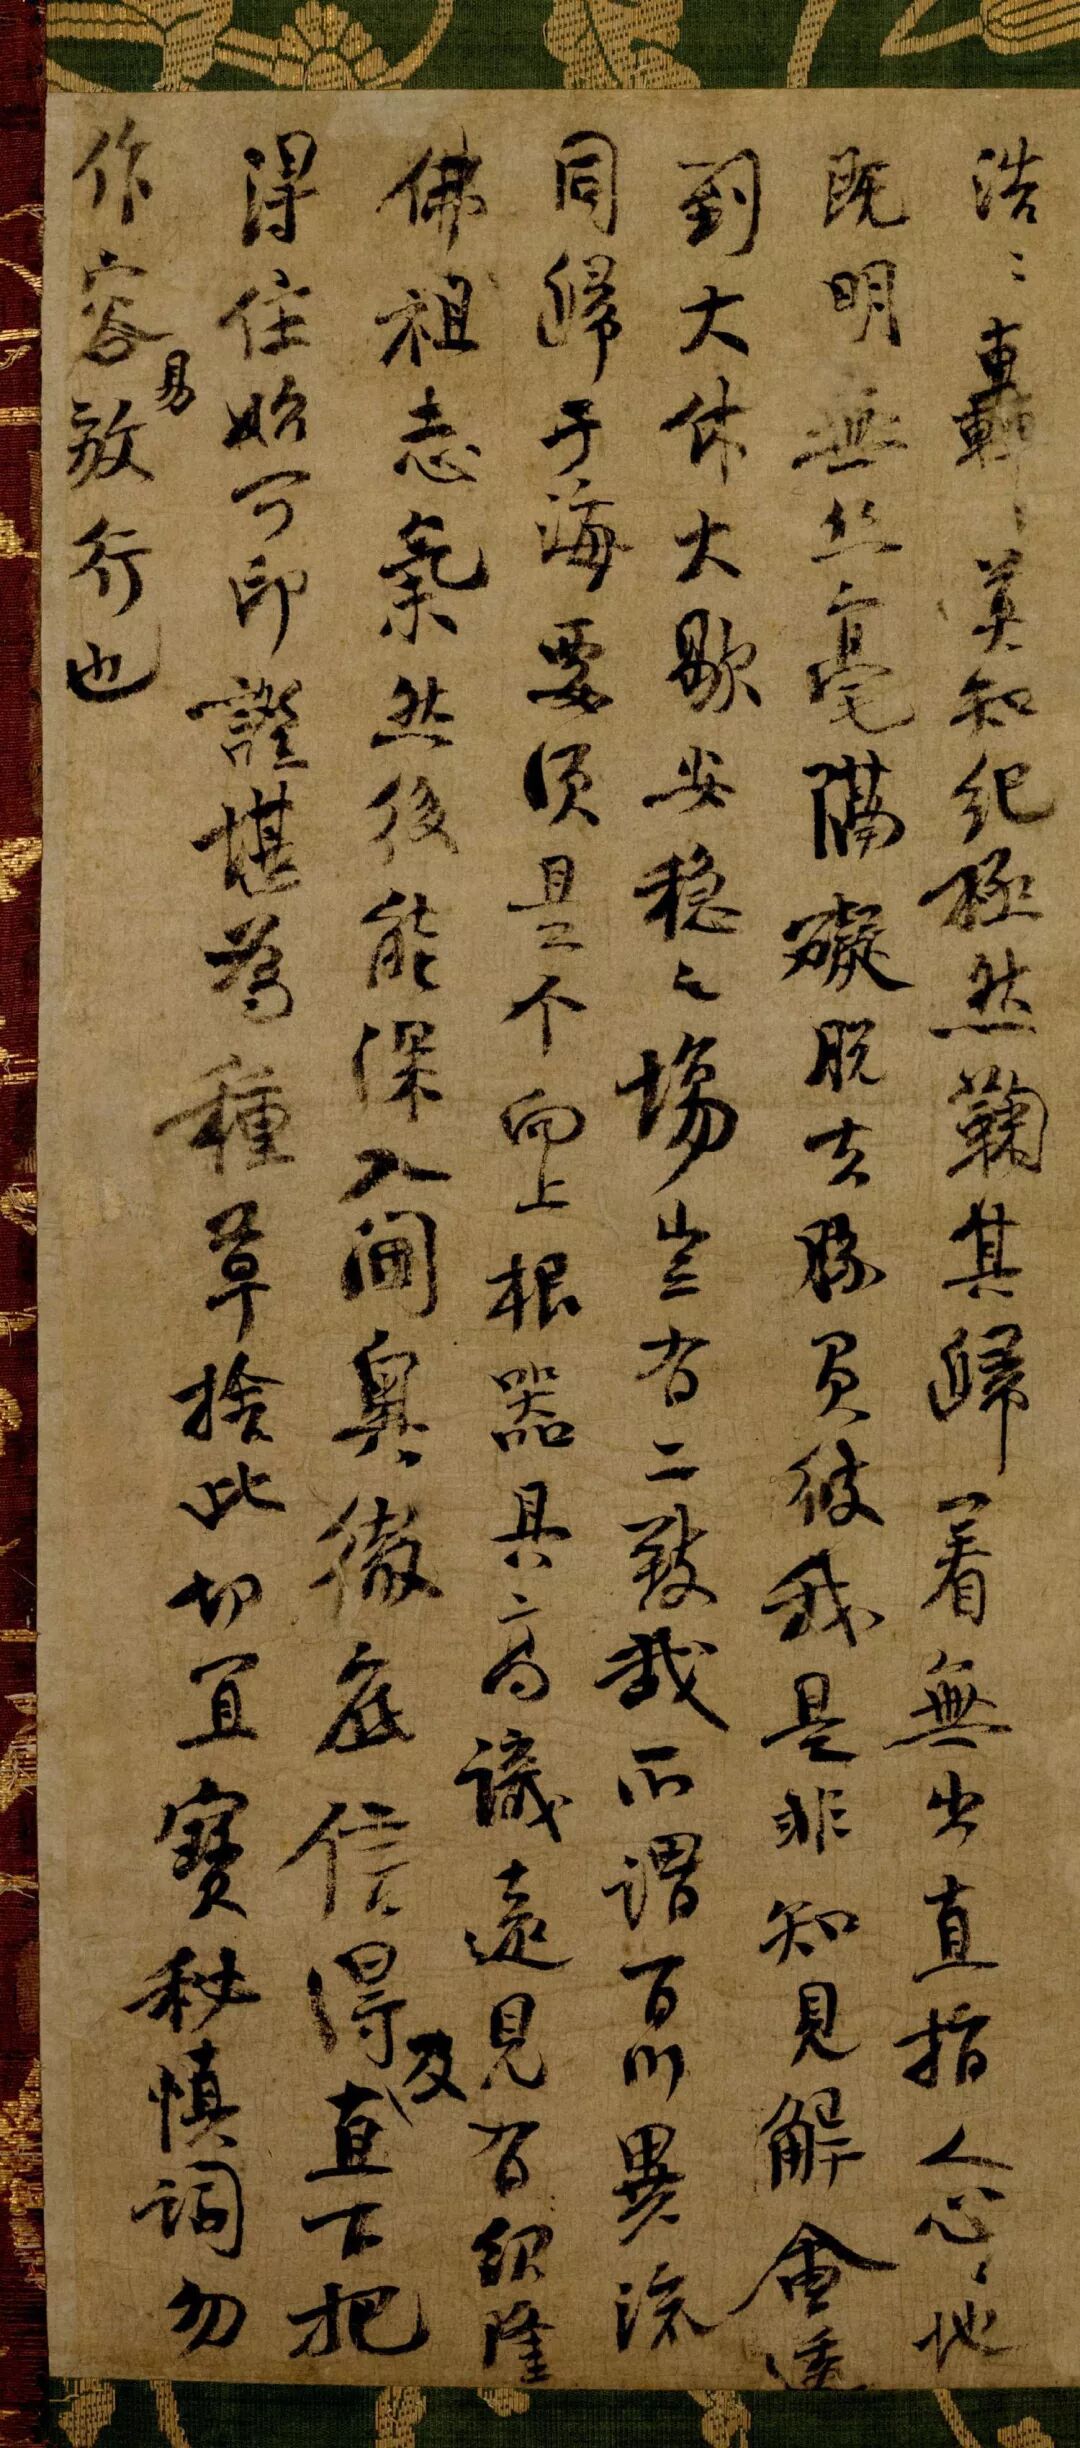 浩〻轟〻莫知紀極然鞠其歸着無出直指人心〻地
既明無絲毫隔礙脫去勝負彼我是非知見解會透
到大休大歇安穩之場豈有二致哉所謂百川異流
同歸于海要須是个向上根器具高識遠見有紹隆
佛祖志氣然後能深入閫奧徹底信得及直下把
得住始可印證堪為種草捨此切宜寶秘慎詞勿
作容易放行也